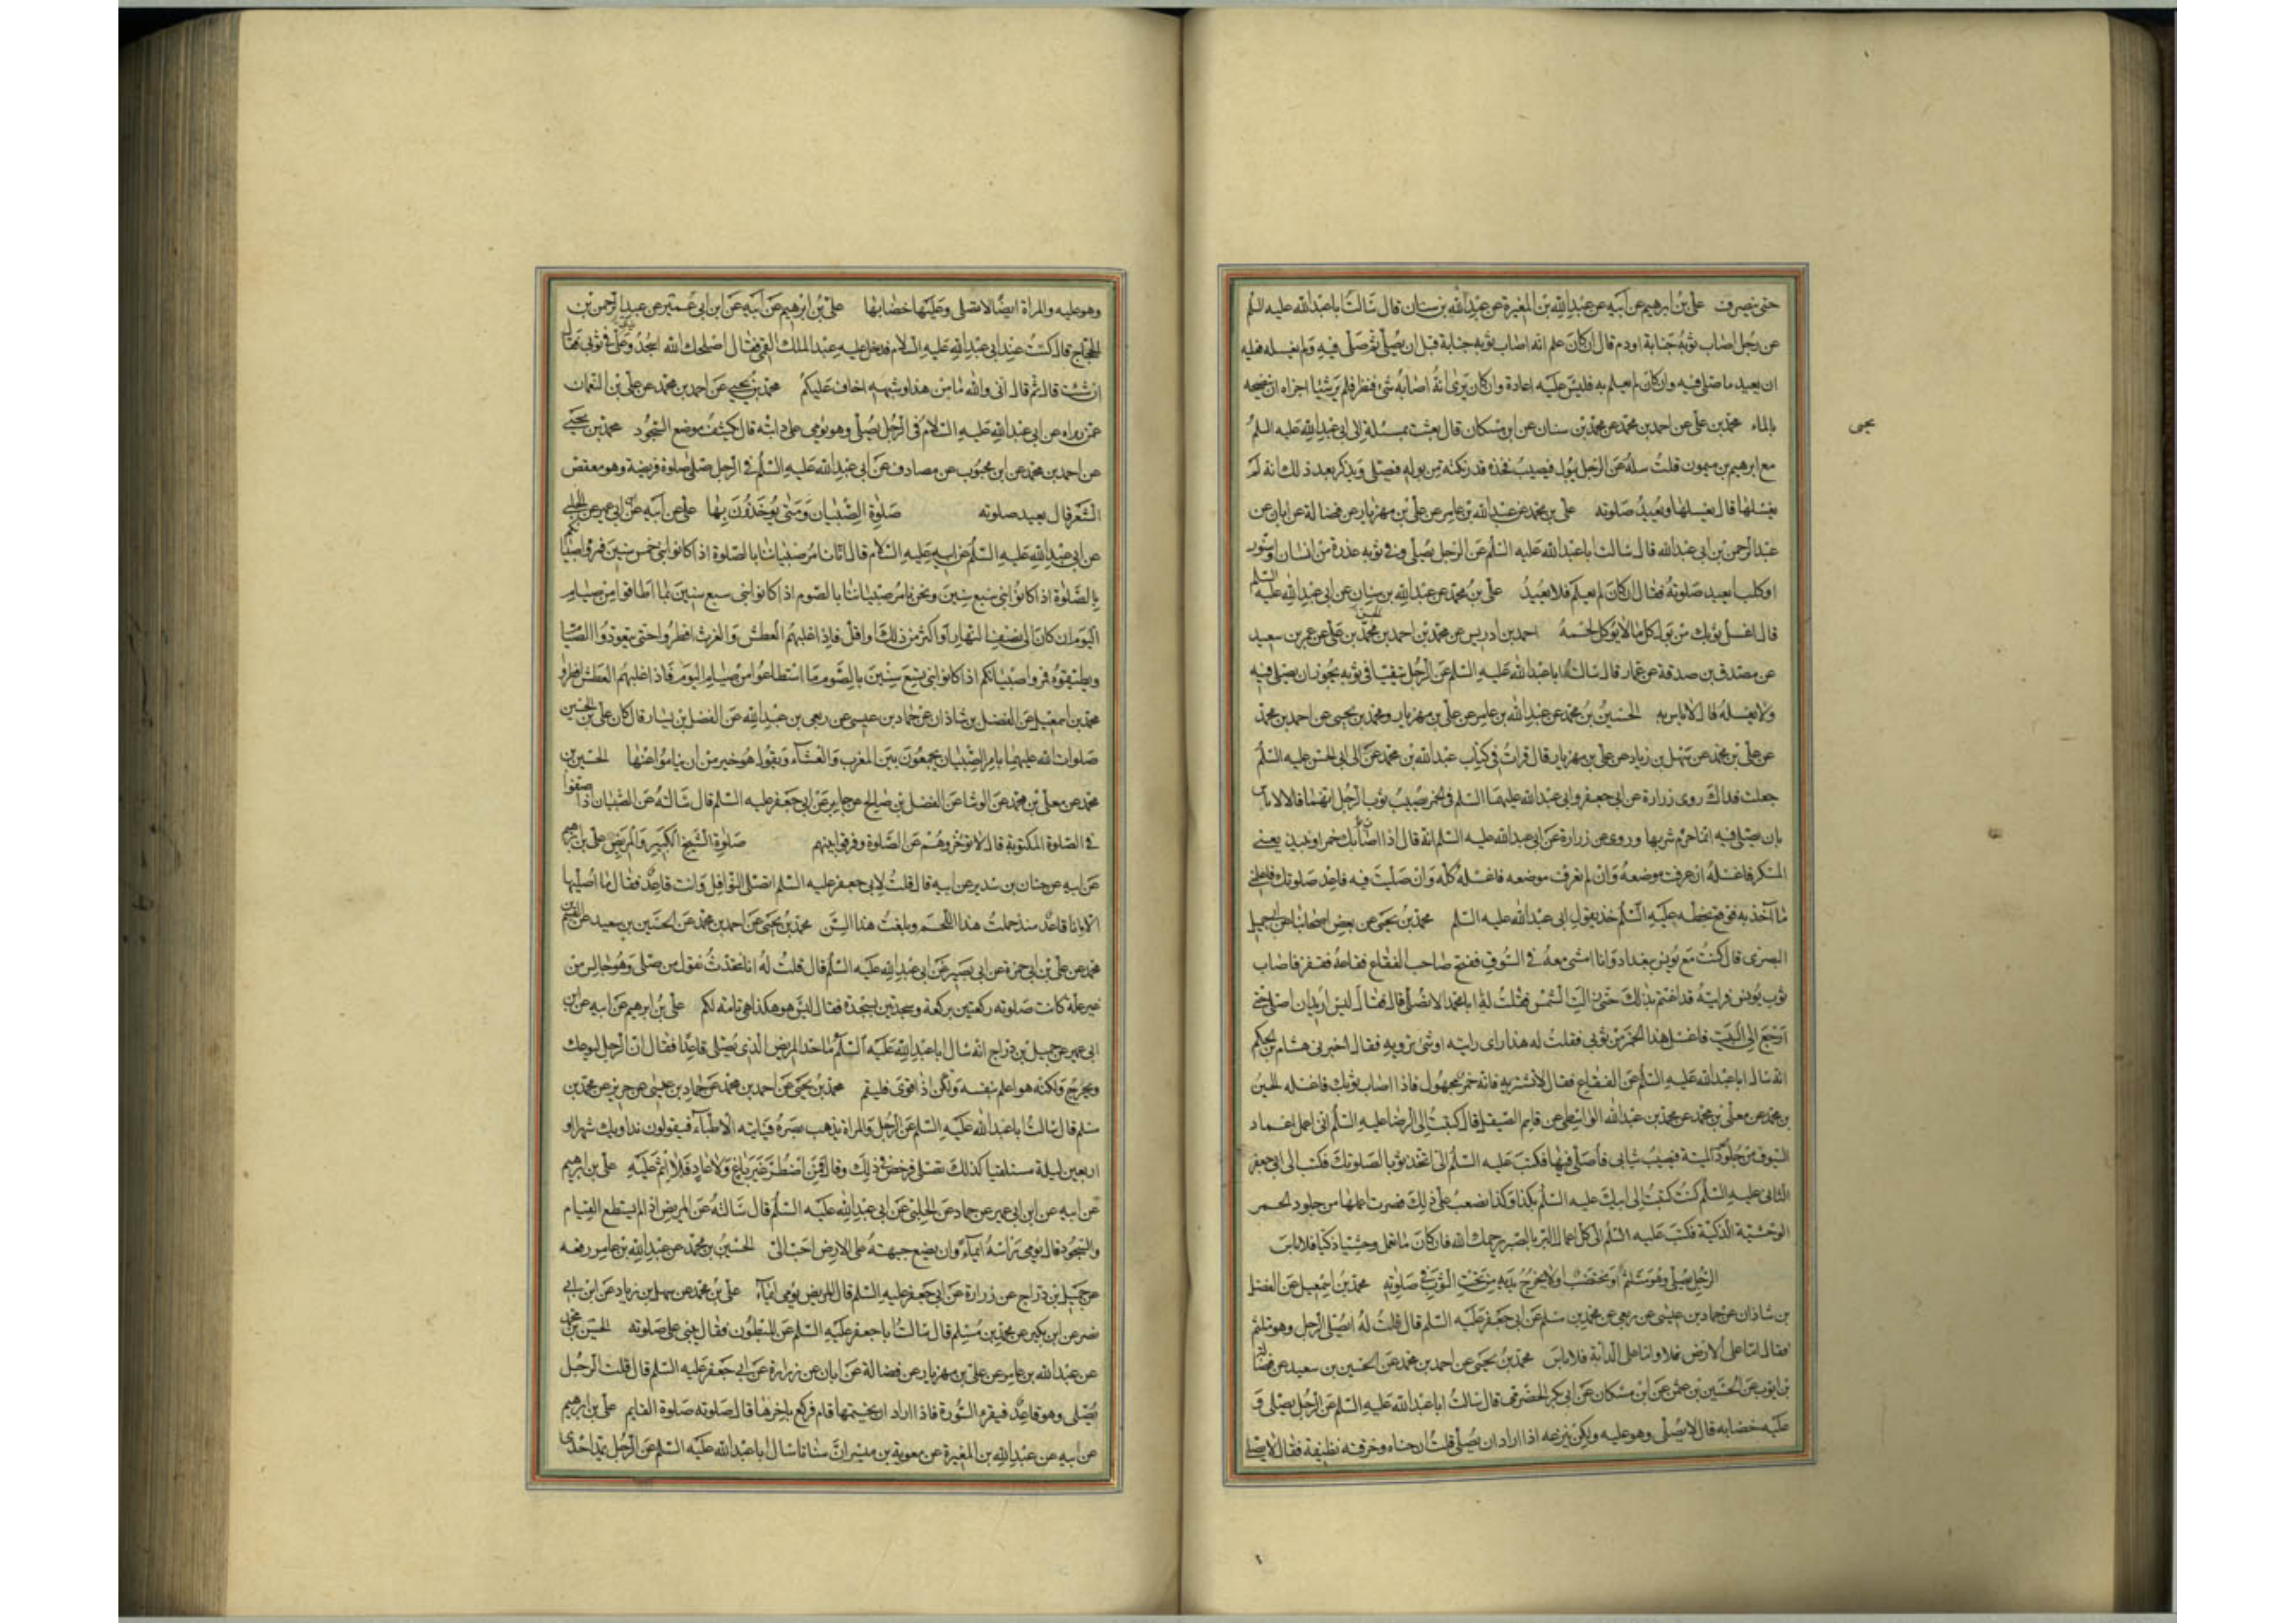 حتى ينصرف علي بن ابرهيم عن ابيه عن عبد الله بن المغيرة عن عبد الله بن سنان قال سالت ابا عبد الله عليه السلم
عن رجل اصاب ثوبه جنابة او دم قال ان كان علم انه اصاب ثوبه جنابة قبل ان يصلي ثم صلى فيه ولم يغسله فعليه
ان يعيد ما صلى فيه وان كان لم يعلم به فليس عليه اعادة وان كان يرى انه اصابه شئ فنظر فلم ير شيئا اجزاه ان ينضحه
بالماء محمد بن علي عن احمد بن محمد عن محمد بن سنان عن ابن مسكان قال بعثت بمسئلة الى ابي عبد الله عليه السلم
يحيى
مع ابرهيم بن ميمون قلت سله عن الرجل يبول فيصيب فخذه قدر نكتة من بوله فيصلي ويذكر بعد ذلك انه لم
يغسلها قال يغسلها ويعيد صلوته علي بن محمد عن عبد الله بن عامر عن علي بن مهزيار عن فضالة عن ابان عن
عبد الرحمن بن ابي عبد الله قال سالت ابا عبد الله عليه السلم عن الرجل يصلي وفي ثوبه عذرة من انسان او سنور
او كلب ايعيد صلوته فقال ان كان لم يعلم فلا يعيد علي بن محمد عن عبد الله بن سنان عن ابي عبد الله عليه السلم
قال اغسل ثوبك من بول كل ما لا يؤكل لحمه احمد بن ادريس عن محمد بن احمد بن محمد بن علي عن عمر بن سعيد
عن مصدق بن صدقة عن عمار قال سالت ابا عبد الله عليه السلم عن الرجل يتقيا في ثوبه يجوز ان يصلي فيه
ولا يغسله قال لا باس به الحسين بن محمد عن عبد الله بن عامر عن علي بن مهزيار ومحمد بن يحيى عن احمد بن محمد
عن علي بن محمد عن سهل بن زياد عن علي بن مهزيار قال قرات في كتاب عبد الله بن محمد عن الى ابي الحسن عليه السلم
جعلت فداك روى زرارة عن ابي جعفر وابي عبد الله عليهما السلم في الخمر يصيب ثوب الرجل انهما قالا لا باس
بان يصلي فيه انما حرم شربها وروى عن زرارة عن ابي عبد الله عليه السلم انه قال اذا اصاب ثوبك خمر او نبيذ يعني
المسكر فاغسله ان عرفت موضعه وان لم تعرف موضعه فاغسله كله وان صليت فيه فاعد صلوتك فاعلمني
ما آخذ به فوقع بخطه عليه السلم خذ بقول ابي عبد الله عليه السلم محمد بن يحيى عن بعض اصحابنا عن ابي جميل
البصري قال كنت مع يونس ببغداد وانا امشي معه في السوق ففتح صاحب الفقاع فقاعه فقفز فاصاب
ثوب يونس فرايته قد اغتم بذلك حتى زالت الشمس فقلت له يا ابا محمد الا تصلي قال فقال ليس اريد ان اصلي حتى
ارجع الى البيت فاغسل هذا الخمر من ثوبي فقلت له هذا راى رايته او شئ ترويه فقال اخبرني هشام بن الحكم
انه سال ابا عبد الله عليه السلم عن الفقاع فقال لا تشربه فانه خمر مجهول فاذا اصاب ثوبك فاغسله الحسين
بن محمد عن معلى بن محمد عن محمد بن عبد الله الواسطي عن قاسم الصيقل قال كتبت الى الرضا عليه السلم اني اعمل اغماد
السيوف من جلود الحمر الميتة فيصيب ثيابي فاصلي فيها فكتب عليه السلم الي اتخذ ثوبا لصلوتك فكتب الى ابي جعفر
الثاني عليه السلم كنت كتبت الى ابيك عليه السلم بكذا وكذا فصعب علي ذلك فصرت اعملها من جلود الحمر
الوحشية الذكية فكتب عليه السلم الي كل اعمال البر بالصبر يرحمك الله فان كان ما تعمل وحشيا ذكيا فلا باس
الرجل يصلي وهو متلثم او مختضب ولا يخرج يديه من تحت الثوب في صلوته محمد بن اسمعيل عن الفضل
بن شاذان عن حماد بن عيسى عن ربعي عن محمد بن مسلم عن ابي جعفر عليه السلم قال قلت له ايصلي الرجل وهو متلثم
فقال اما على الارض فلا واما على الدابة فلا باس محمد بن يحيى عن احمد بن محمد عن الحسين بن سعيد عن فضالة
بن ايوب عن الحسين بن عثمن عن ابن مسكان عن ابي بكر الحضرمي قال سالت ابا عبد الله عليه السلم عن الرجل يصلي و
عليه خضابه قال لا يصلي وهو عليه ولكن ينزعه اذا اراد ان يصلي قلت ان حناه وخرقته نظيفة فقال لا يصلي
وهو عليه والمراة ايضا لا تصلي وعليها خضابها علي بن ابرهيم عن ابيه عن ابن ابي عمير عن عبد الرحمن بن
الحجاج قال كنت عند ابي عبد الله عليه السلام فدخل عليه عبد الملك القمي فقال اصلحك الله اسجد ويدي في ثوبي فقال
ان شئت قال ثم قال اني والله ما من هذا وشبهه اخاف عليكم محمد بن يحيى عن احمد بن محمد عن علي بن النعمان
عمن رواه عن ابي عبد الله عليه السلام في الرجل يصلي وهو يؤمي على دابته قال يكشف موضع السجود محمد بن يحيى
عن احمد بن محمد عن ابن محبوب عن مصادف عن ابي عبد الله عليه السلم في الرجل صلى صلوة فريضة وهو معقص
الشعر قال يعيد صلوته صلوة الصبيان ومتى يؤخذون بها علي عن ابيه عن ابي عمير عن الحلبي
عن ابي عبد الله عليه السلم عن ابيه عليه السلام قال انا نامر صبياننا بالصلوة اذا كانوا بني خمس سنين فمروا صبيانكم
بالصلوة اذا كانوا بني سبع سنين ونحن نامر صبياننا بالصوم اذا كانوا بني سبع سنين بما اطاقوا من صيام
اليوم ان كان الى نصف النهار او اكثر من ذلك او اقل فاذا غلبهم العطش والغرث افطروا حتى يتعودوا الصيام
ويطيقوه فمروا صبيانكم اذا كانوا بني تسع سنين بالصوم ما استطاعوا من صيام اليوم فاذا غلبهم العطش افطروا
محمد بن اسمعيل عن الفضل بن شاذان عن حماد بن عيسى عن ربعي بن عبد الله عن الفضل بن يسار قال كان علي بن الحسين
صلوات الله عليهما يامر الصبيان يجمعون بين المغرب والعشاء ويقول هو خير من ان يناموا عنها الحسين بن
محمد عن معلى بن محمد عن الوشا عن الفضل بن صالح عن جابر عن ابي جعفر عليه السلم قال سالته عن الصبيان اذا صفوا
في الصلوة المكتوبة قال لا تؤخروهم عن الصلوة وفرقوا بينهم صلوة الشيخ الكبير والمريض علي بن ابرهيم
عن ابيه عن حنان بن سدير عن ابيه قال قلت لابي جعفر عليه السلم اتصلي النوافل وانت قاعد فقال ما اصليها
الا وانا قاعد منذ حملت هذا اللحم وبلغت هذا السن محمد بن يحيى عن احمد بن محمد عن الحسين بن سعيد عن القسم بن
محمد عن علي بن ابي حمزة عن ابي بصير عن ابي عبد الله عليه السلم قال قلت له انا نتحدث نقول من صلى وهو جالس من
غير علة كانت صلوته ركعتين بركعة وسجدتين بسجدة فقال ليس هو هكذا هي تامة لكم علي بن ابرهيم عن ابيه عن ابن
ابي عمير عن جميل بن دراج انه سال ابا عبد الله عليه السلم ما حد المريض الذي يصلي قاعدا فقال ان الرجل ليوعك
ويحرج ولكنه هو اعلم بنفسه ولكن اذا قوى فليقم محمد بن يحيى عن احمد بن محمد عن حماد بن عيسى عن حريز عن محمد بن
مسلم قال سالت ابا عبد الله عليه السلم عن الرجل والمراة يذهب بصره فياتيه الاطباء فيقولون نداويك شهرا او
اربعين ليلة مستلقيا كذلك تصلي فرخص في ذلك وقال فمن اضطر غير باغ ولا عاد فلا اثم عليه علي بن ابرهيم
عن ابيه عن ابن ابي عمير عن حماد عن الحلبي عن ابي عبد الله عليه السلم قال سالته عن المريض اذا لم يستطع القيام
والسجود قال يؤمي براسه ايماء وان يضع جبهته على الارض احب الي الحسين بن محمد عن عبد الله بن عامر رفعه
عن جميل بن دراج عن زرارة عن ابي جعفر عليه السلم قال المريض يؤمي ايماء علي بن محمد عن سهل بن زياد عن ابن ابي
نصر عن ابن بكير عن محمد بن مسلم قال سالت ابا جعفر عليه السلم عن المبطون فقال يبني على صلوته الحسين بن محمد
عن عبد الله بن عامر عن علي بن مهزيار عن فضالة عن ابان عن زرارة عن ابي جعفر عليه السلم قال قلت الرجل
يصلي وهو قاعد فيقرء السورة فاذا اراد ان يختمها قام فركع باخرها قال صلوته صلوة القايم علي بن ابرهيم
عن ابيه عن عبد الله بن المغيرة عن معوية بن ميسر ان سنانا سال ابا عبد الله عليه السلم عن الرجل يمد احدى